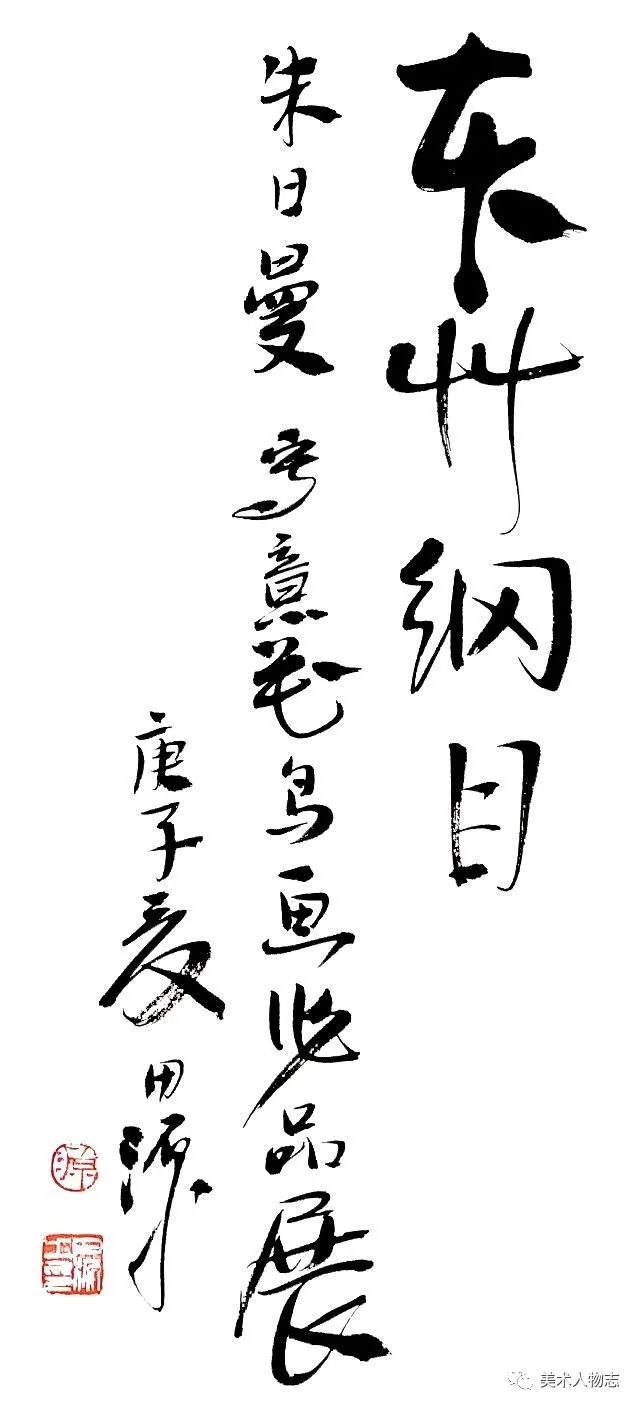 本艸纲目
朱日曼 写意花鸟画作品展
庚子夏 田源
美术人物志